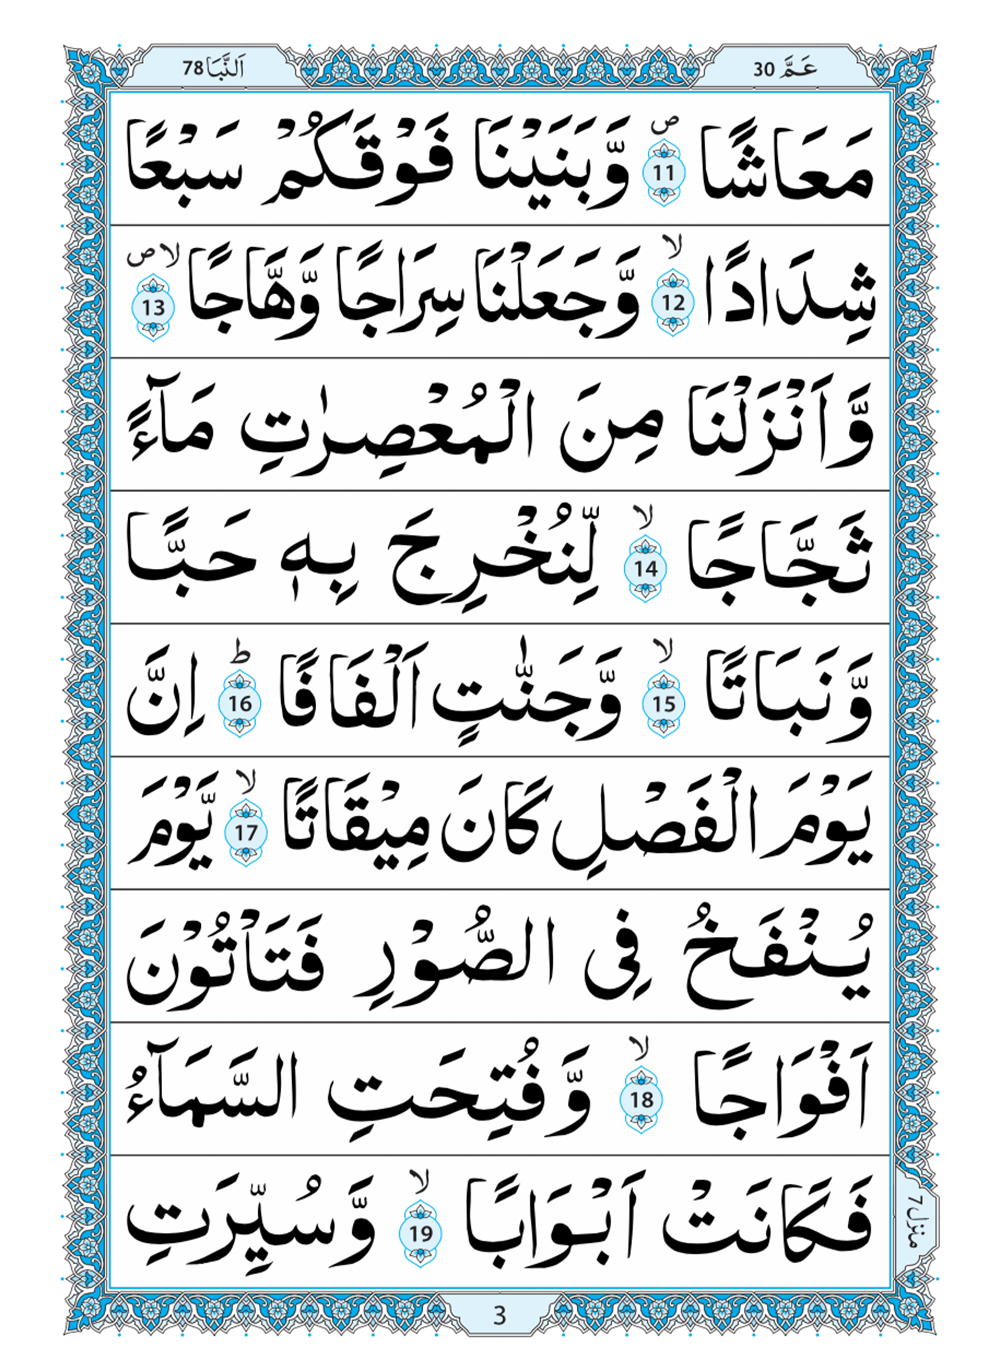 عَمَّ 30
اَلنَّبَا 78
مَعَاشًا ۝11ۙ وَّبَنَيْنَا فَوْقَكُمْ سَبْعًا
شِدَادًا ۝12ۙ وَّجَعَلْنَا سِرَاجًا وَّهَّاجًا ۝13ۙ
وَّاَنْزَلْنَا مِنَ الْمُعْصِرٰتِ مَآءً
ثَجَّاجًا ۝14ۙ لِّنُخْرِجَ بِهٖ حَبًّا
وَّنَبَاتًا ۝15ۙ وَّجَنّٰتٍ اَلْفَافًا ۝16ؕ اِنَّ
يَوْمَ الْفَصْلِ كَانَ مِيْقَاتًا ۝17ۙ يَّوْمَ
يُنْفَخُ فِى الصُّوْرِ فَتَاْتُوْنَ
اَفْوَاجًا ۝18ۙ وَّفُتِحَتِ السَّمَآءُ
فَكَانَتْ اَبْوَابًا ۝19ۙ وَّسُيِّرَتِ
منزل 7
3